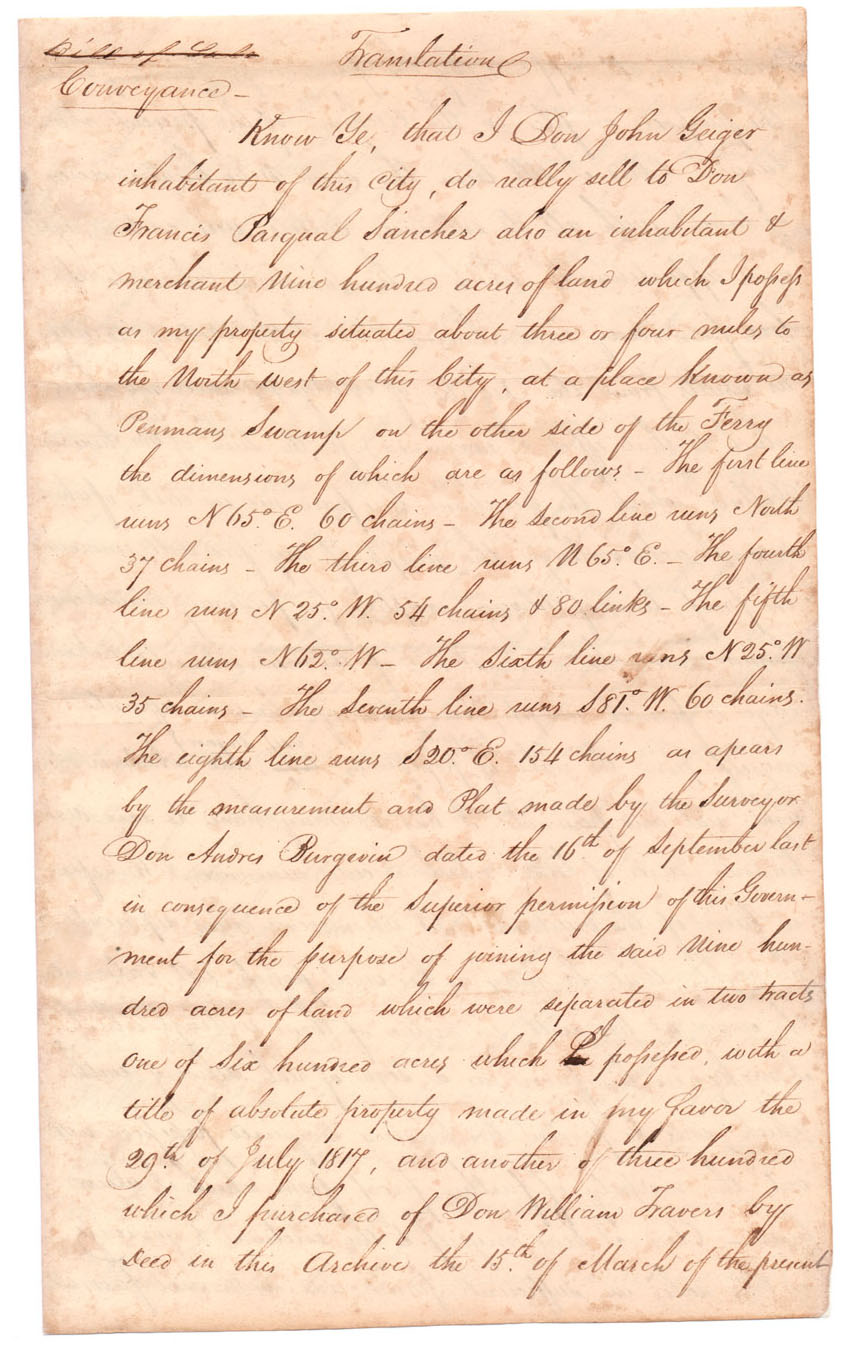 Bill of Sale
Translation
Conveyance -
Know Ye, that I Don John Geiger
inhabitant of this City, do really sell to Don
Francis Pasqual Sanchez also an inhabitant &
merchant Nine hundred acres of land which I possess
as my property situated about three or four miles to
the North west of this City, at a place known as
Penmans Swamp on the other side of the Ferry
the dimensions of which are as follows - The first line
runs N 65.° E. 60 chains - The second line runs North
37 chains - The third line runs N 65.° E. - The fourth
line runs N 25.° W. 54 chains & 80 links - The fifth
line runs N 62.° W - The Sixth line runs N 25.° W
35 chains - The Seventh line runs S 81.° W. 60 chains.
The eighth line runs S 20.° E. 154 chains as apears
by the measurement and Plat made by the Surveyor
Don Andres Burgevin dated the 16th of September last
in consequence of the Superior permission of this Govern-
ment for the purpose of joining the said Nine hun-
dred acres of land which were separated in two tracts
one of Six hundred acres which I possessed, with a
title of absolute property made in my favor the
29th of July 1817, and another of three hundred
which I purchased of Don William Travers by
Deed in this Archive the 15th of March of the present